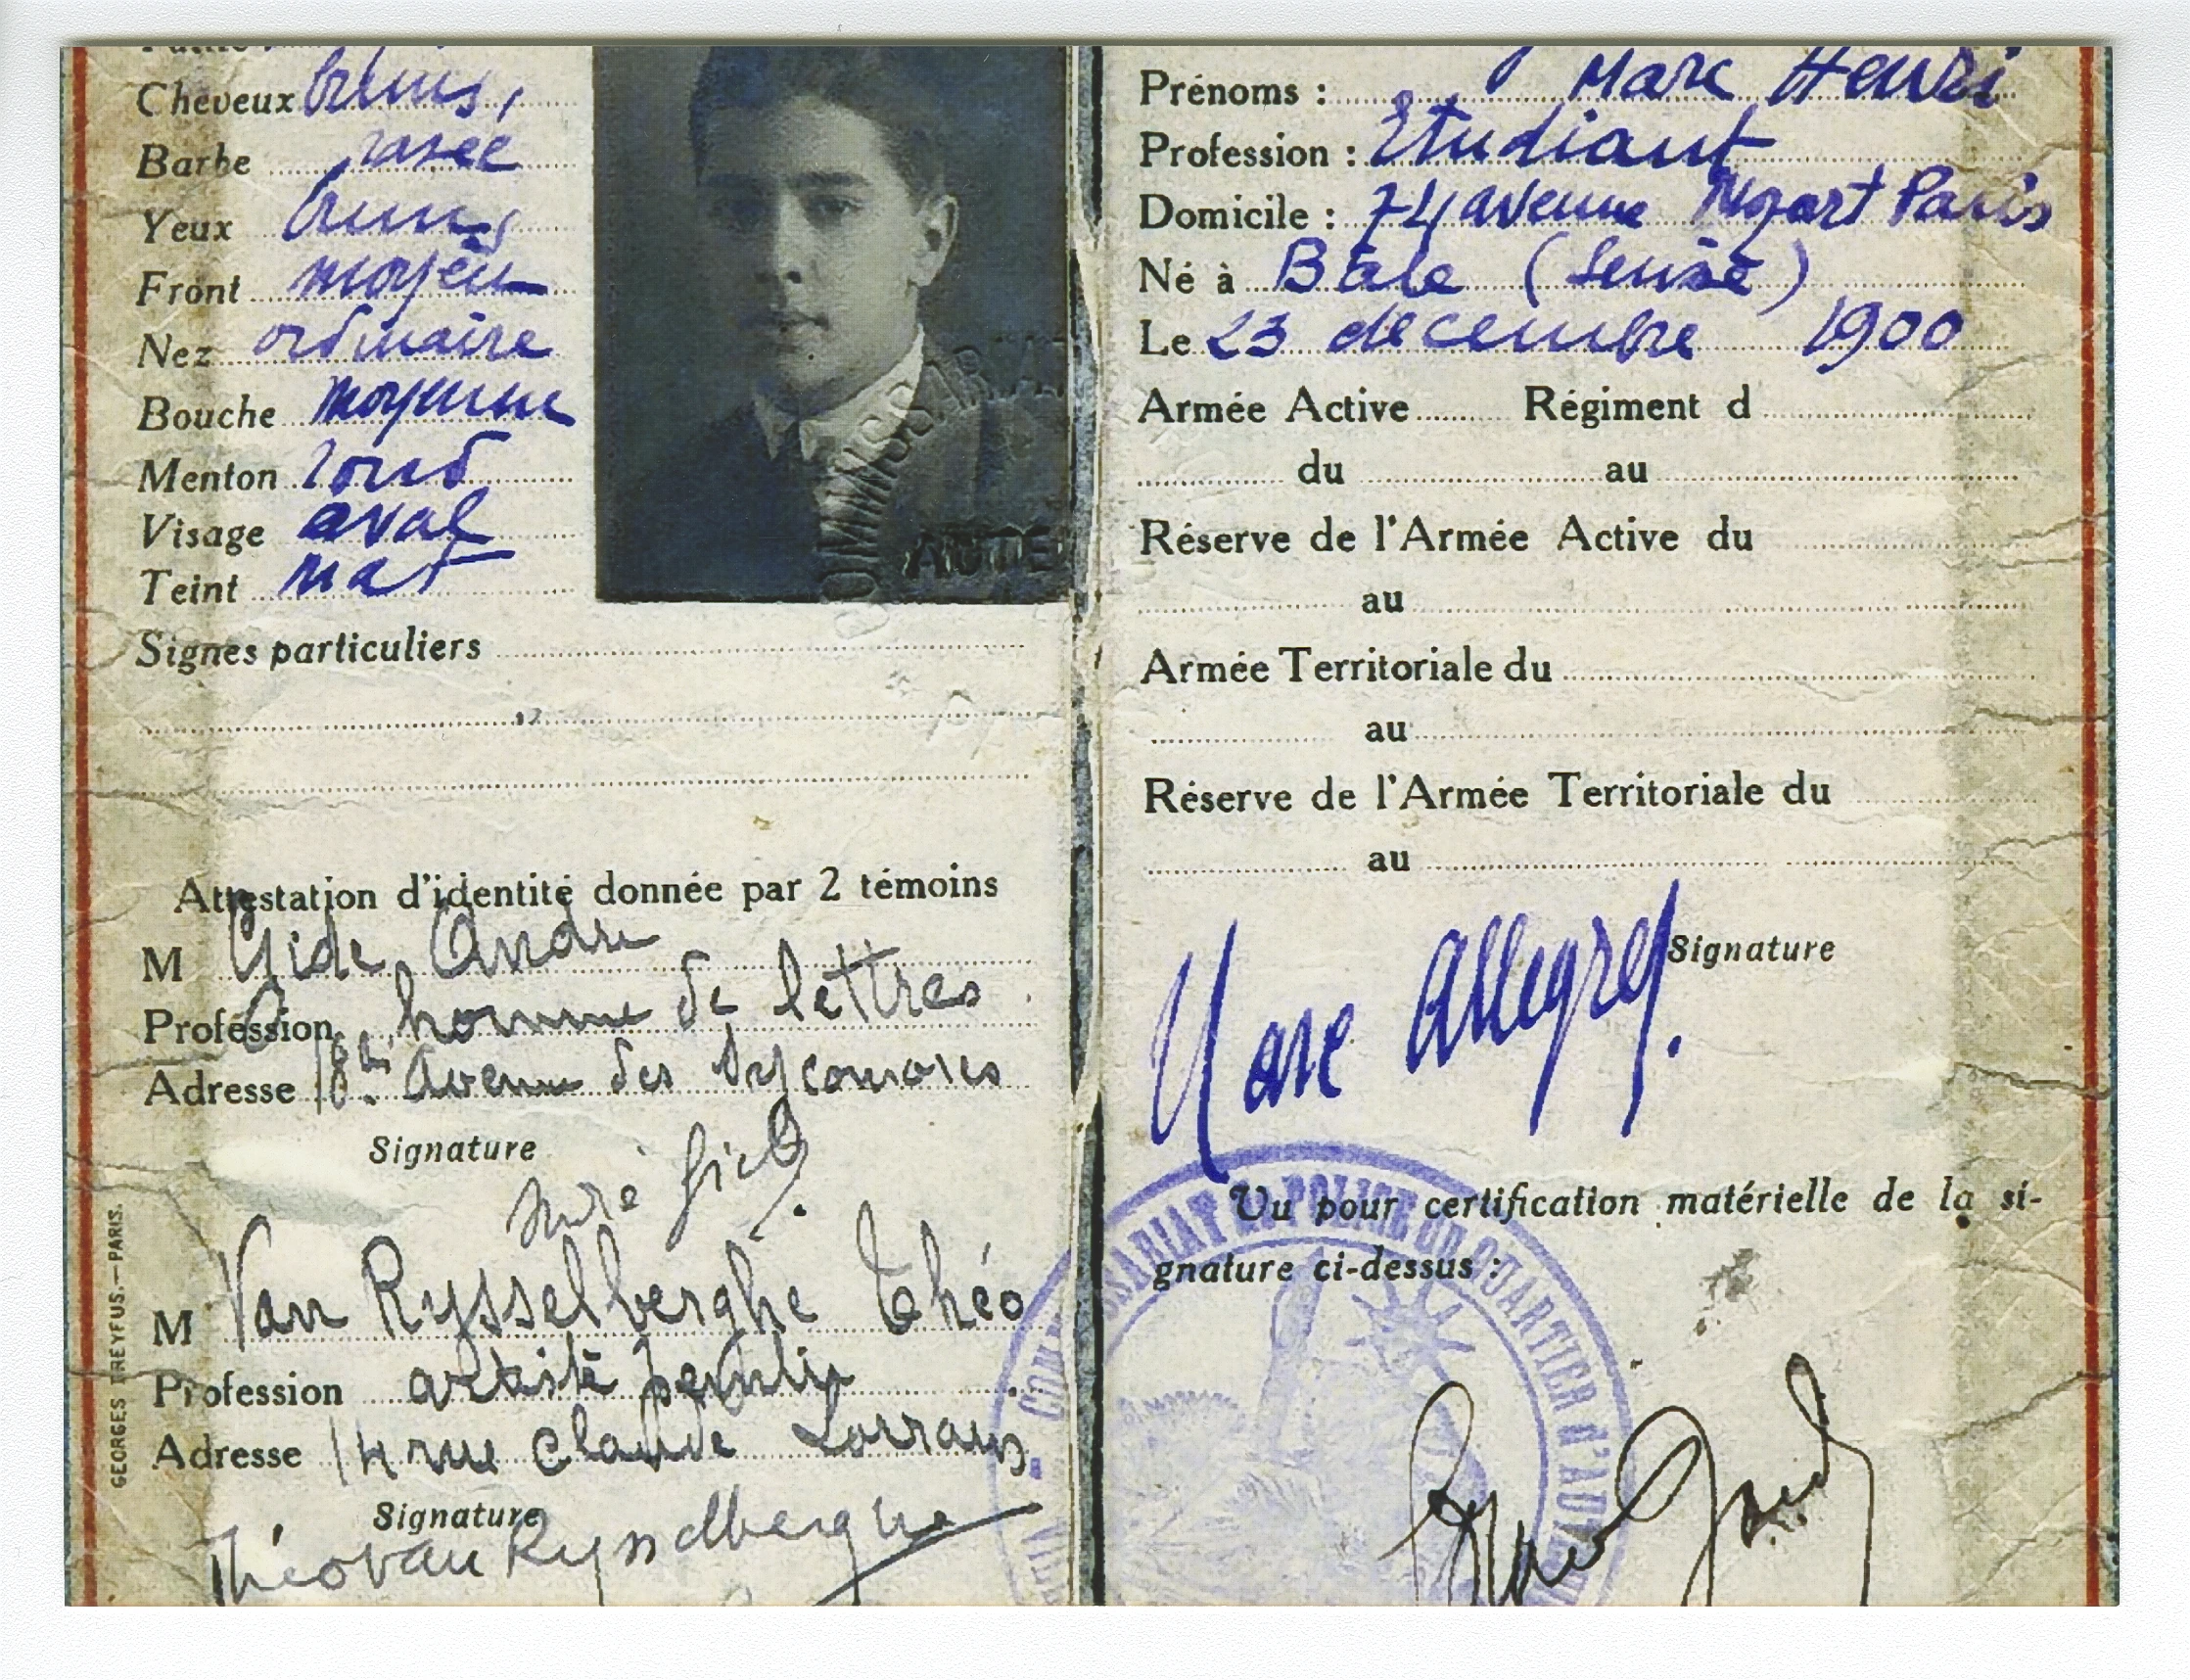 Cheveux bruns,
Barbe rasée
Yeux bruns
Front moyen
Nez ordinaire
Bouche moyenne
Menton rond
Visage oval
Teint mat
Signes particuliers
Attestation d'identité donnée par 2 témoins
M Gide André
Profession homme de lettres
Adresse 18bis Avenue des Sycomores
Signature
André Gide.
M Van Rysselberghe Théo
Profession artiste peintre
Adresse 14 rue Claude Lorrain.
Signature
Théo van Rysselberghe
GEORGES DREYFUS.—PARIS.
AUTE
Prénoms : Marc Henri
Profession : Etudiant
Domicile : 74 avenue Mozart Paris
Né à Bâle (Suisse)
Le 23 décembre 1900
Armée Active Régiment d
du au
Réserve de l'Armée Active du
au
Armée Territoriale du
au
Réserve de l'Armée Territoriale du
au
Signature
Marc Allégret.
Vu pour certification matérielle de la si-
gnature ci-dessus :
COMMISSARIAT DE POLICE DU QUARTIER D'AUTEUIL